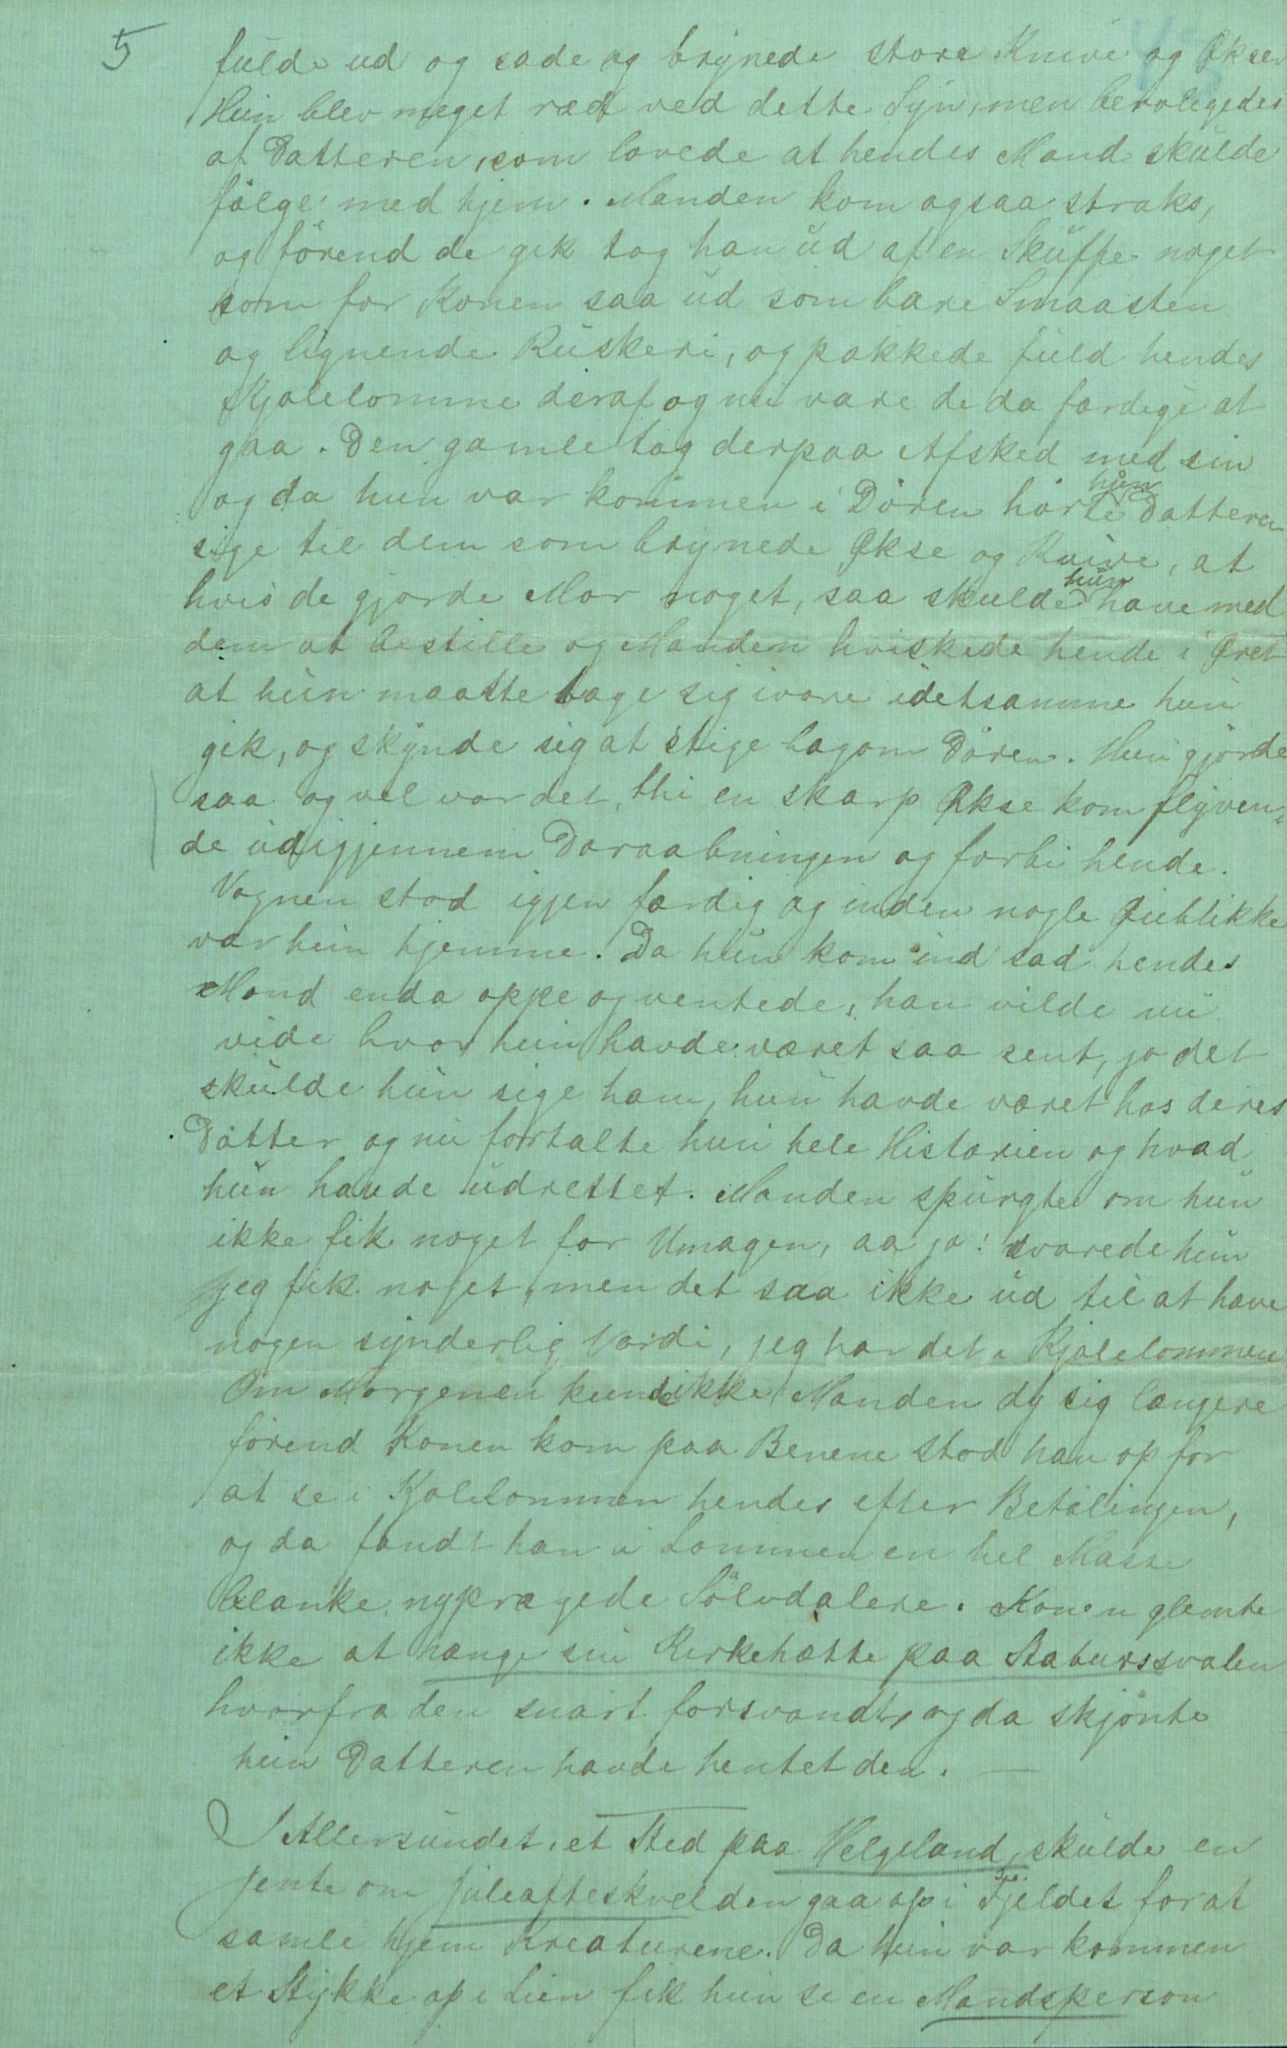 5
fulde ud og sade og brynede store Knive og Økser
Hun blev meget ræd ved dette Syn, men beroligedes
af Datteren, som lovede at hendes Mand skulde
følge med hjem. Manden kom ogsaa straks,
og førend de gik tog han ud af en Skuffe noget
som for Konen saa ud som bare Smaasten
og lignende Ruskeri, og pakkede fuld hendes
Kjolelomme deraf og nu vare de da færdige at
gaa. Den gamle tog derpaa Afsked med sin
og da hun var kommen i Døren hørte hun Datteren
sige til dem som brynede Økse og Knive, at
hvis de gjorde Mor noget, saa skulde hun have med
dem at bestille og Manden hviskede hende i Øret
at hun maatte tage sig ivare idetsamme hun
gik, og skynde sig at stige bagom Døren. Hun gjorde
saa og vel var det, thi en skarp Økse kom flyven-
de udigjennem Døraabningen og forbi hende.
Vognen stod igjen færdig og inden nogle Øieblikke
var hun hjemme. Da hun kom ind sad hendes
Mand enda oppe og ventede, han vilde nu
vide hvor hun havde været saa sent, jo det
skulde hun sige ham, hun havde været hos deres
Datter og nu fortalte hun hele Historien og hvad
hun havde udrettet. Manden spurgte om hun
ikke fik noget for Umagen, aa jo! svarede hun
jeg fik noget, men det saa ikke ud til at have
nogen synderlig Værdi, jeg har det i Kjolelommen
Om Morgenen kunde ikke Manden dy sig længere
førend Konen kom paa Benene stod han op for
at se i Kjolelommen hendes efter Betalingen,
og da fandt han i Lommen en hel Masse
blanke, nyprægede Sølvdalere. Konen glemte
ikke at hænge sin Kirkehætte paa Stabursvalen
hvorfra den snart forsvandt, og da skjønte
hun Datteren havde hentet den. —
I Allersundet, et Sted paa Helgeland, skulde en
Jente om juleafteskvelden gaa op i Fjeldet for at
samle hjem Kreaturene. Da hun var kommen
et Stykke op i Lien fik hun se en Mandsperson